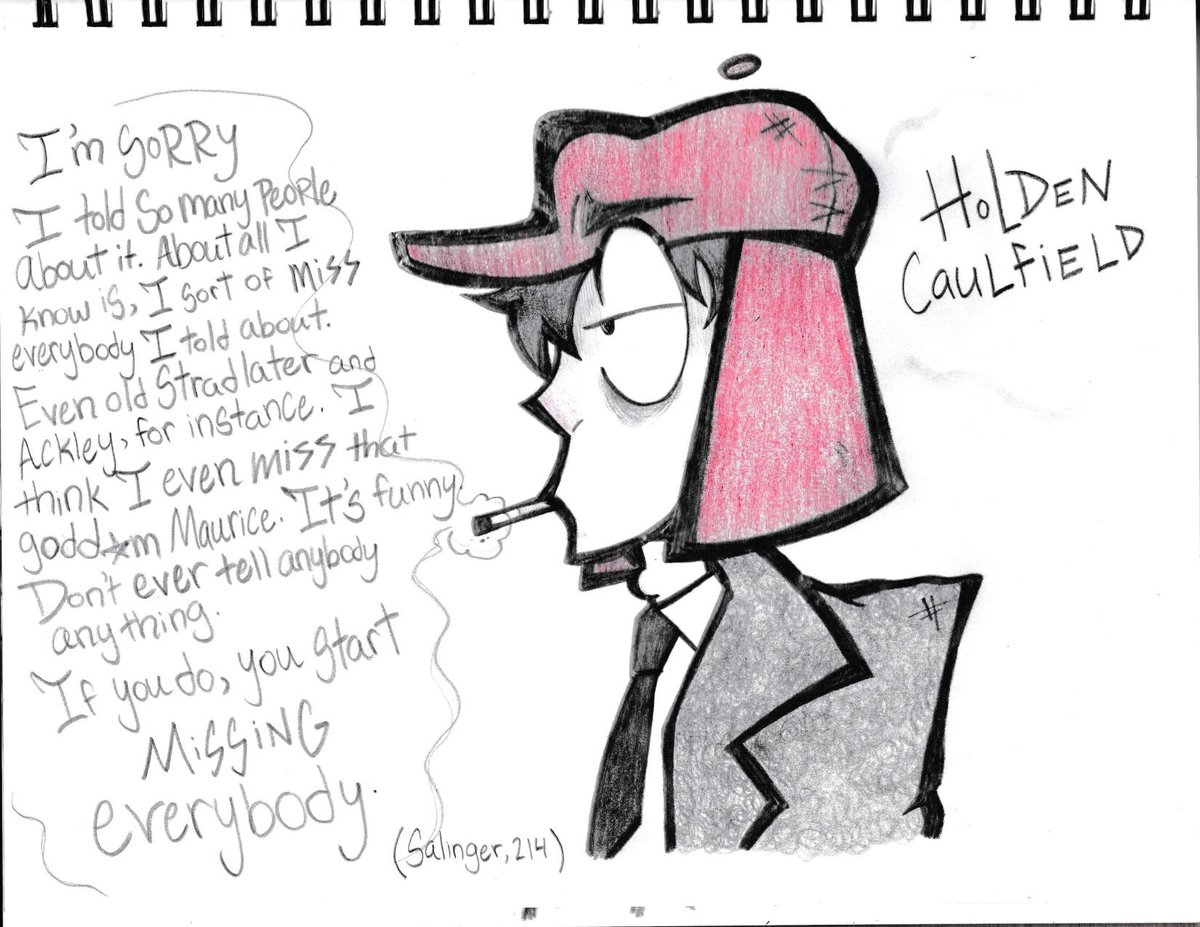 I'm SORRY
I told so many people
about it. About all I
know is, I sort of miss
everybody I told about.
Even old Stradlater and
Ackley, for instance. I
think I even miss that
godd★m Maurice. It's funny.
Don't ever tell anybody
anything.
If you do, you start
MiSSiNG
everybody.
(Salinger, 214)
HoLDEN
CAULfiELD